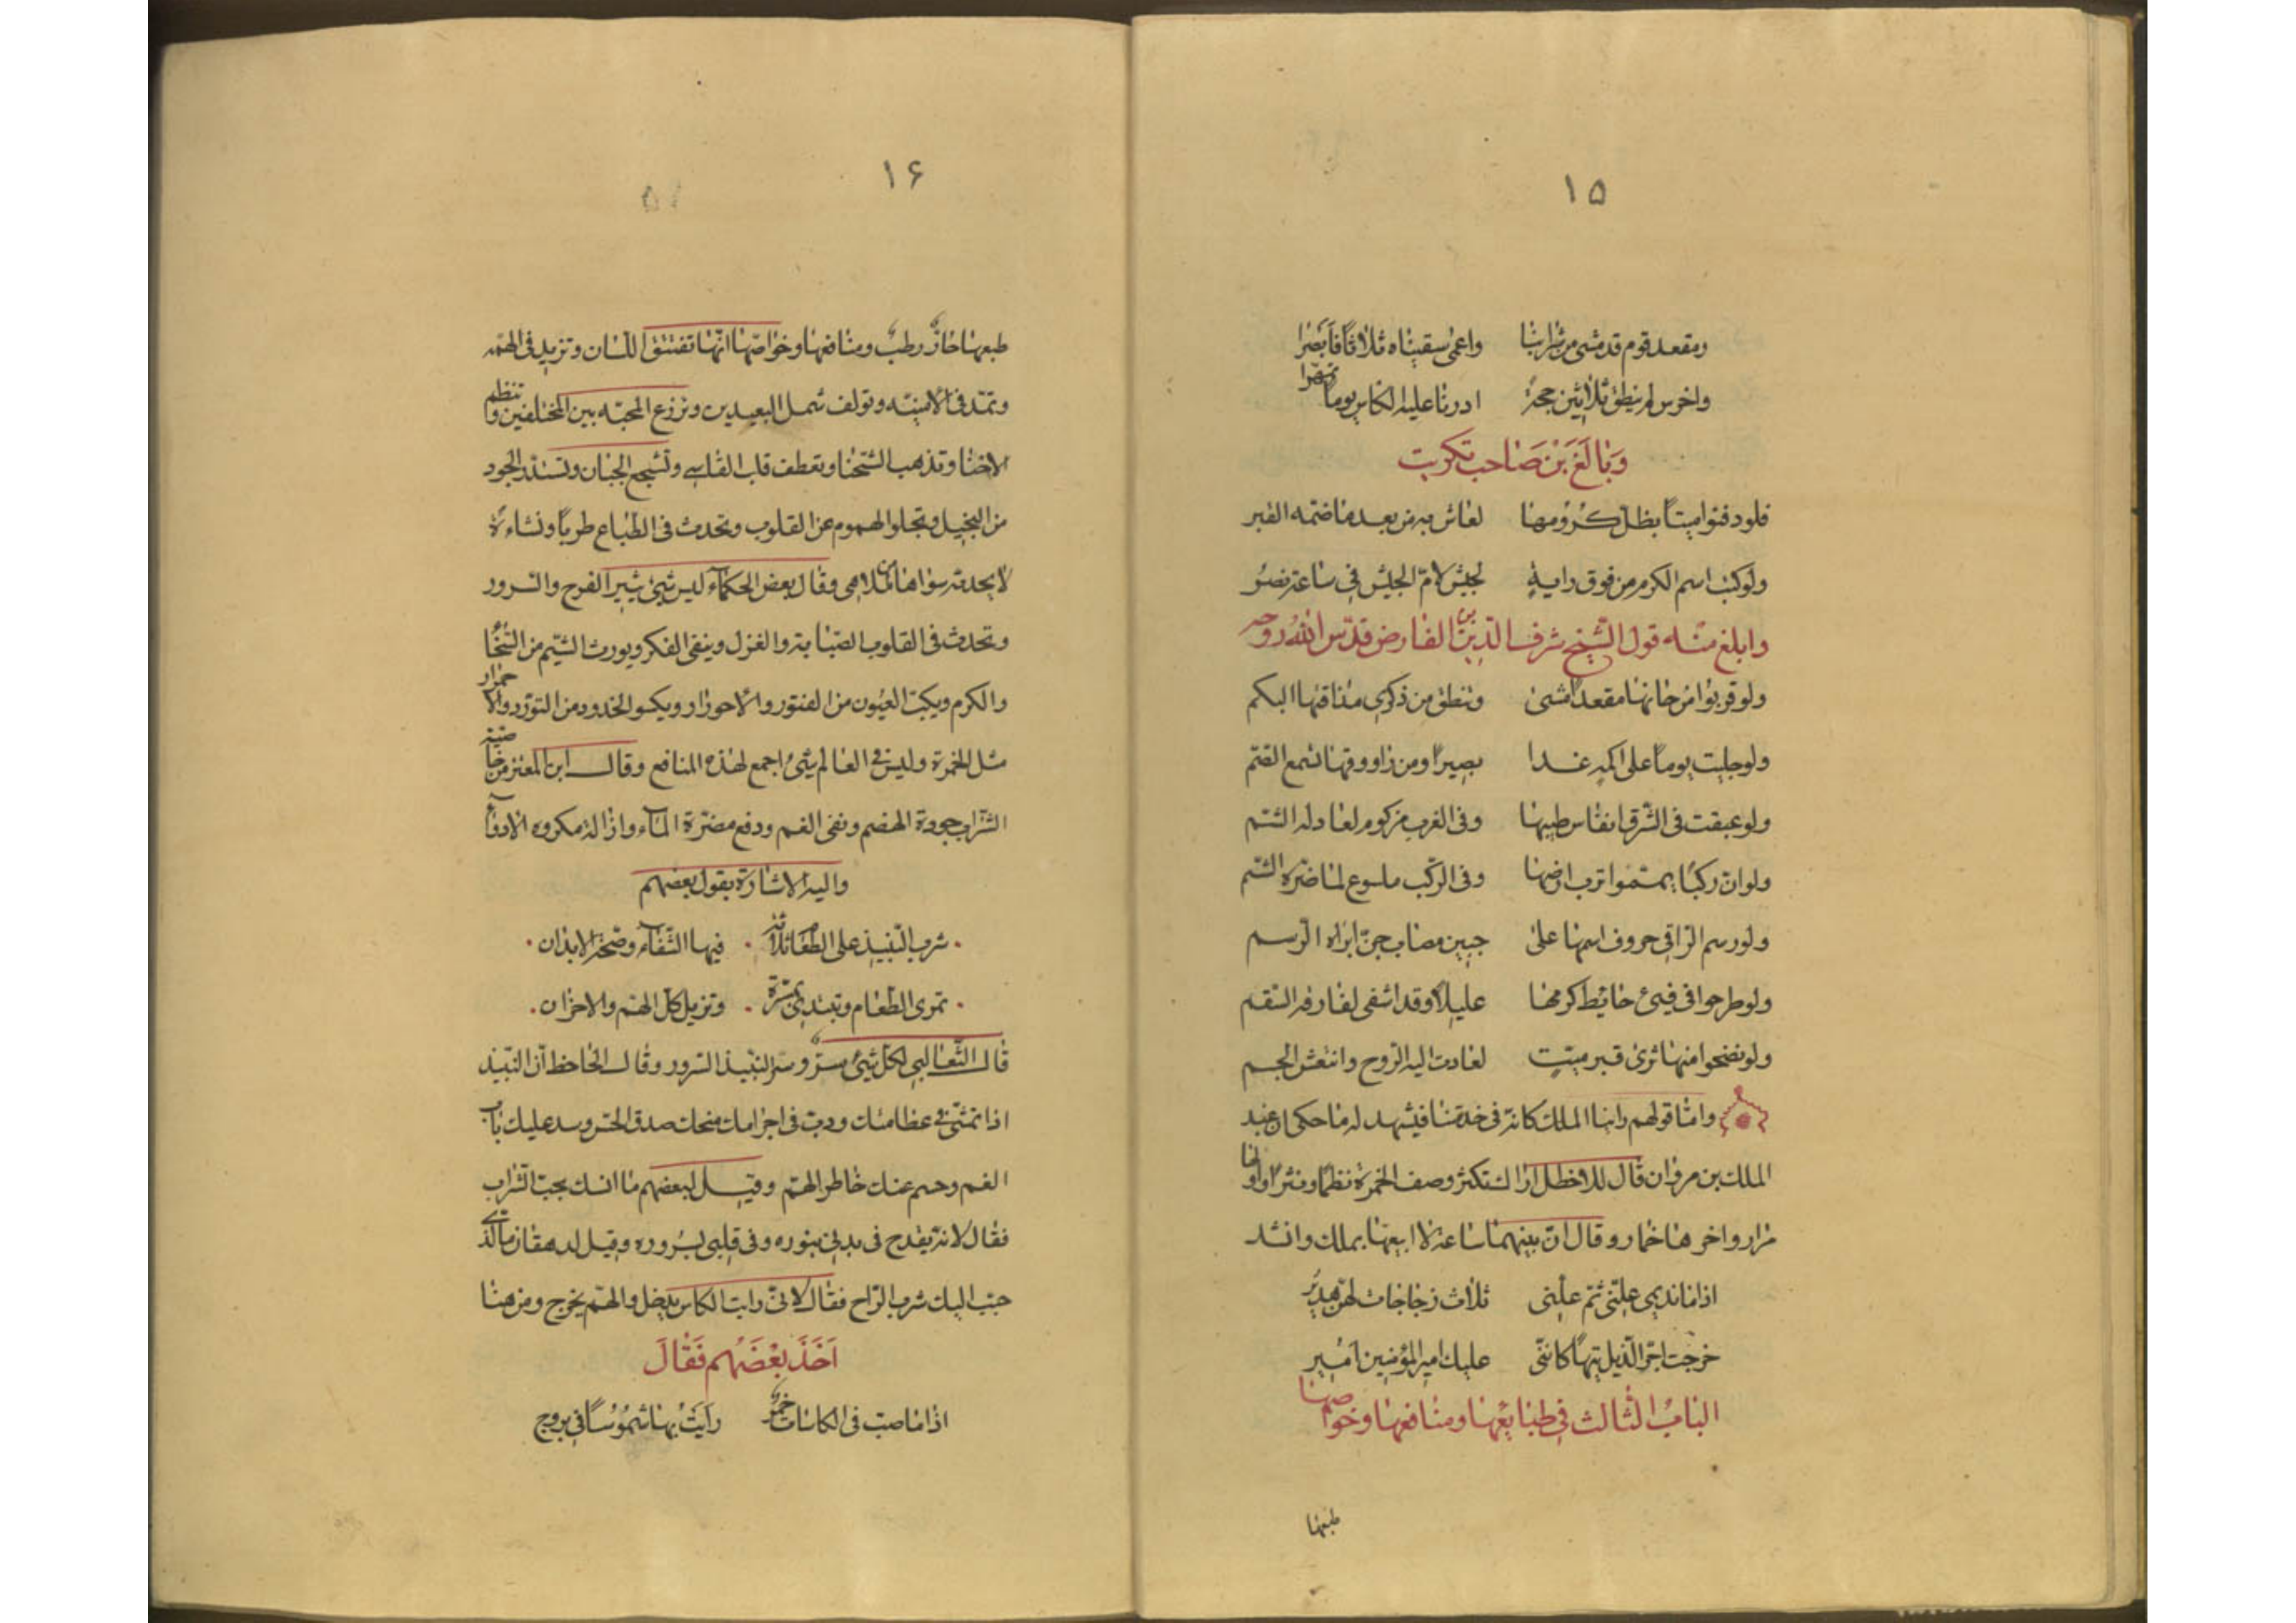 ١٥
ومقعد قوم قد مشى من شرابنا واعمى سقيناه ثلاثا فابصرا
واخرس لم ينطق ثلاثين حجة ادرنا عليه الكاس يوما
وبالغ بن صاحب تكريت
فلو دفنوا ميتا بظل كرومها لعاش به من بعد ما ضمه القبر
ولو كتب اسم الكرم من فوق راية لجيش لامّ الجيش في ساعة نصر
وابلغ منه قول الشيخ شرف الدين بن الفارض قدّس الله روحه
ولو قربوا من حانها مقعدا مشى وتنطق من ذكرى مذاقها البكم
ولو جليت يوما على اكمه غدا بصيرا ومن راووقها تسمع الصّم
ولو عبقت فى الشرق انفاس طيبها وفى الغرب مزكوم لعاد له الشم
ولو ان ركبا يمّموا ترب ارضها وفى الركب ملسوع لما ضره السّم
ولو رسم الرّاقى حروف اسمها على جبين مصاب جنّ ابراه الرسم
ولو طرحوا فى فيئ حايط كرمها عليلا وقد اشفى لفارقه السّقم
ولو نضحوا منها ثرى قبر ميّت لعادت اليه الروح وانتعش الجسم
وامّا قولهم رابها الملك كانه فى خدمتنا فيشهد له ما حكى ان عبد
الملك بن مروان قال للاخطل اراك تستكثر وصف الخمرة نظما ونثرا واولها
مرار واخرها خمار وقال انّ بينهما ساعة لا ابيعها بملك وانشد
اذا ما نديمى علّنى ثم علّنى ثلاث زجاجات لهن هدير
خرجت اجر الذيل تيها كاننى عليك امير المؤمنين امير
الباب الثالث في طبايعها ومنافعها وخواصها
طبعها
١۶
طبعها حارّ رطب ومنافعها وخواصّها انّها تفتق اللسان وتزيد فى الهمّه
وتمدّ فى الامنيّه وتولف شمل البعيدين وتزرع المحبّه بين المختلفين وتنظم
وتذهب الشحنا وتعطف قلب القاسى وتشجع الجبان وتستدر الجود
من البخيل وتجلو الهموم عن القلوب وتحدث فى الطباع طربا ونشاءة
لا يحدثه سواها وقال بعض الحكماء ليس شيئ يثير الفرح والسرور
وتحدث فى القلوب الصّبابة والغزل وينفى الفكر ويورث الشيم من السّخا
والكرم ويكسب العيون من الفتور والاحورار ويكسو الخدود من التورّد والاحمرار
مثل الخمرة وليس فى العالم شئ اجمع لهذه المنافع وقال ابن المعتز من خاصّية
الشراب جودة الهضم ونفى الغم ودفع مضرّة المآء وازالة مكروه الادوآ
واليه الاشارة بقول بعضهم
شرب النّبيذ على الطّعام ثلاثة فيها الشّفآء وصحّة الابدان
تمرى الطعام وتبتدى بمسرّة وتزيل كل الهم والاحزان
قال الثّعالبى لكل شئ سرّ وسر النبيذ السرور وقال الجاحظ ان النبيذ
اذا تمشّى فى عظامك ودبّ فى اجرامك منحك صدق الحسّ وسد عليك باب
الغم وحسم عنك خاطر الهمّ وقيل لبعضهم ما انك تحب الشراب
فقال لانّه يقدح فى بدنى بنوره وفى قلبى بسروره وقيل لدهقان ما الذى
حبّب اليك شرب الرّاح فقال لانّى رايت الكاس يدخل والهم يخرج ومن هنا
اخذ بعضهم فقال
اذا ما صب فى الكاسات خمر رايت بها شموسا فى بروج